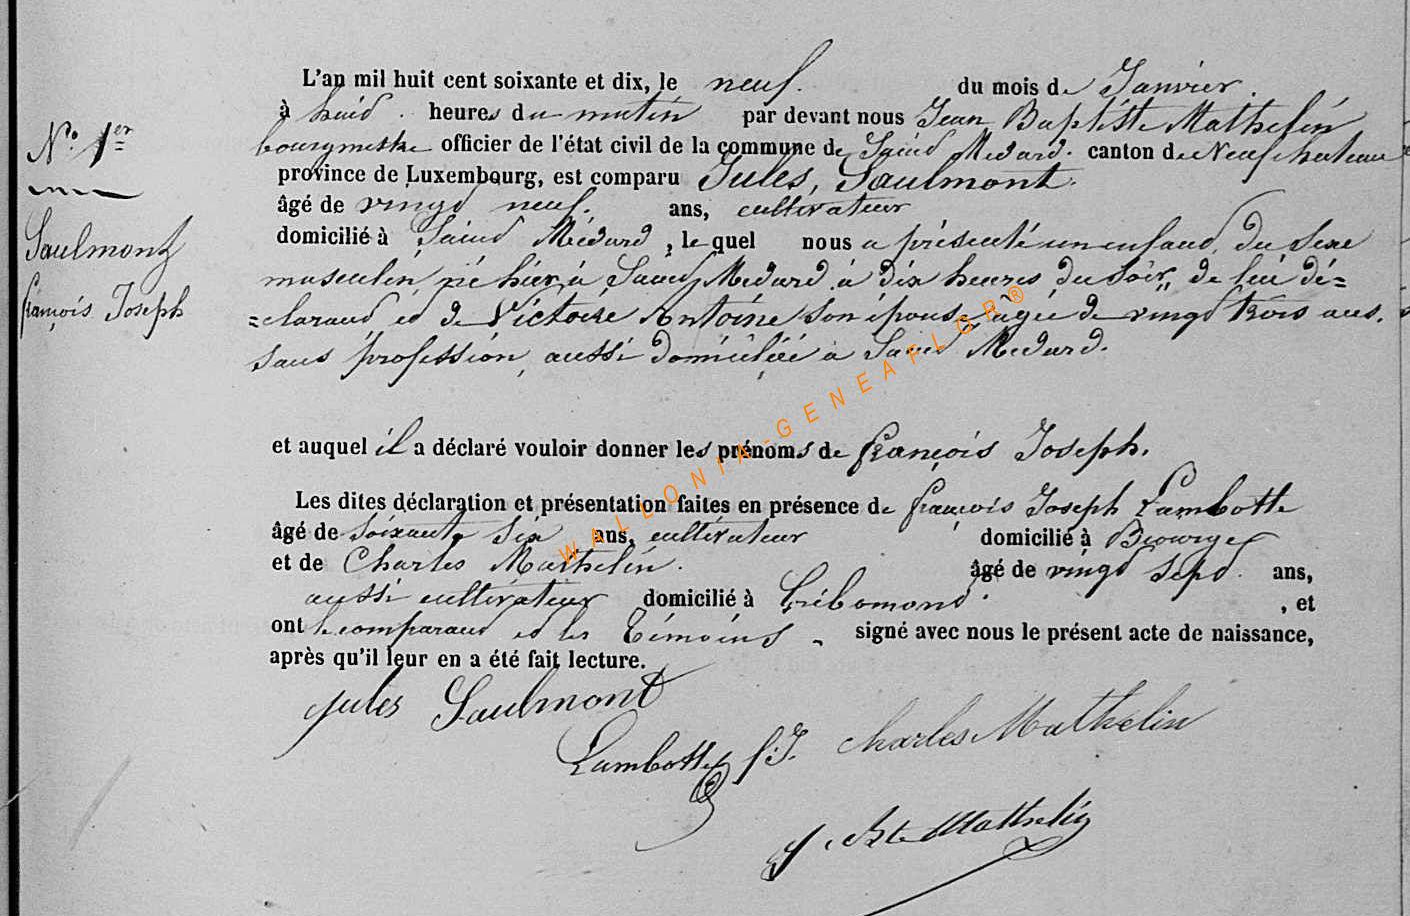 N.° 1er
Saulmont
françois Joseph
L'an mil huit cent soixante et dix, le neuf. du mois de Janvier.
à huit heures du matin par devant nous Jean Baptiste Mathelin
bourgmestre officier de l'état civil de la commune de Saint Medard. canton de Neufchateau
province de Luxembourg, est comparu Jules, Saulmont.
âgé de vingt neuf. ans, cultivateur
domicilié à Saint Médard, le quel nous a présenté un enfant, du sexe
masculin, né hier à Saint Medard à dix heures du soir, de lui dé=
=clarant et de Victoire Antoine son épouse agée de vingt trois ans.
sans profession, aussi domiciliée à Saint Medard.
et auquel il a déclaré vouloir donner les prénoms de françois Joseph.
Les dites déclaration et présentation faites en présence de françois Joseph Lambotte
âgé de soixante six ans, cultivateur domicilié à
et de Charles Mathelin. âgé de vingt sept. ans,
aussi cultivateur domicilié à Grébomont, et
ont le comparant et les témoins signé avec nous le présent acte de naissance,
après qu'il leur en a été fait lecture.
jules Saulmont
Lambotte f.J. charles Mathelin
J. Bte Mathelin
WALLONIA-GENEAFLGR®